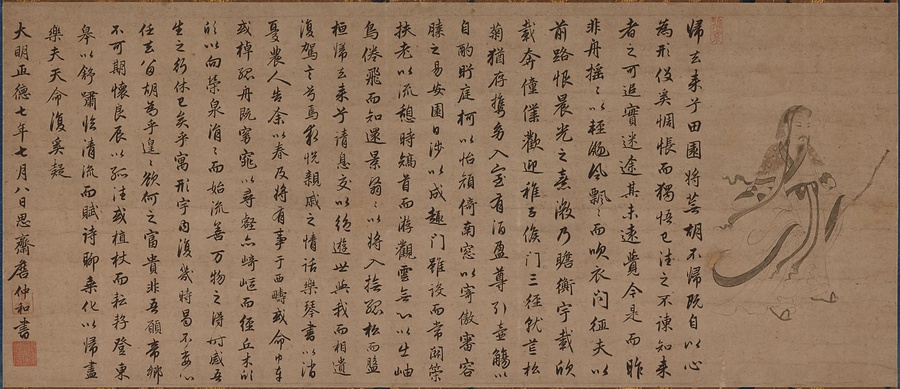 歸去来兮田園将蕪胡不歸既自以心
為形役奚惆悵而獨悟已往之不諫知来
者之可追實迷途其未遠覺今是而昨
非舟摇〻以輕颺風飄〻而吹衣问征夫以
前路恨晨光之熹微乃瞻衡宇載欣
載奔僮僕歡迎稚子候门三徑就荒松
菊猶存携幼入室有酒盈尊引壺觴以
自酌眄庭柯以怡顔倚南窓以寄傲審容
膝之易安園日涉以成趣门雖設而常關策
扶老以流憩時矯首而游觀雲無心以出岫
鳥倦飛而知還景翳〻以将入撫孤松而盤
桓歸去来兮請息交以絶遊世與我而相遺
復駕言兮焉求悦親戚之情話樂琴書以消
憂農人告余以春及将有事于西疇或命巾车
或棹孤舟既窈窕以尋壑亦崎嶇而經丘木欣
欣以向榮泉涓〻而始流善万物之得时感吾
生之行休已矣乎寓形宇内復幾時曷不委心
任去留胡為乎遑〻欲何之富貴非吾願帝鄉
不可期懷良辰以孤往或植杖而耘耔登東
皋以舒嘯臨清流而賦詩聊乗化以歸盡
樂夫天命復奚疑
大明正德七年七月八日思齋詹仲和書